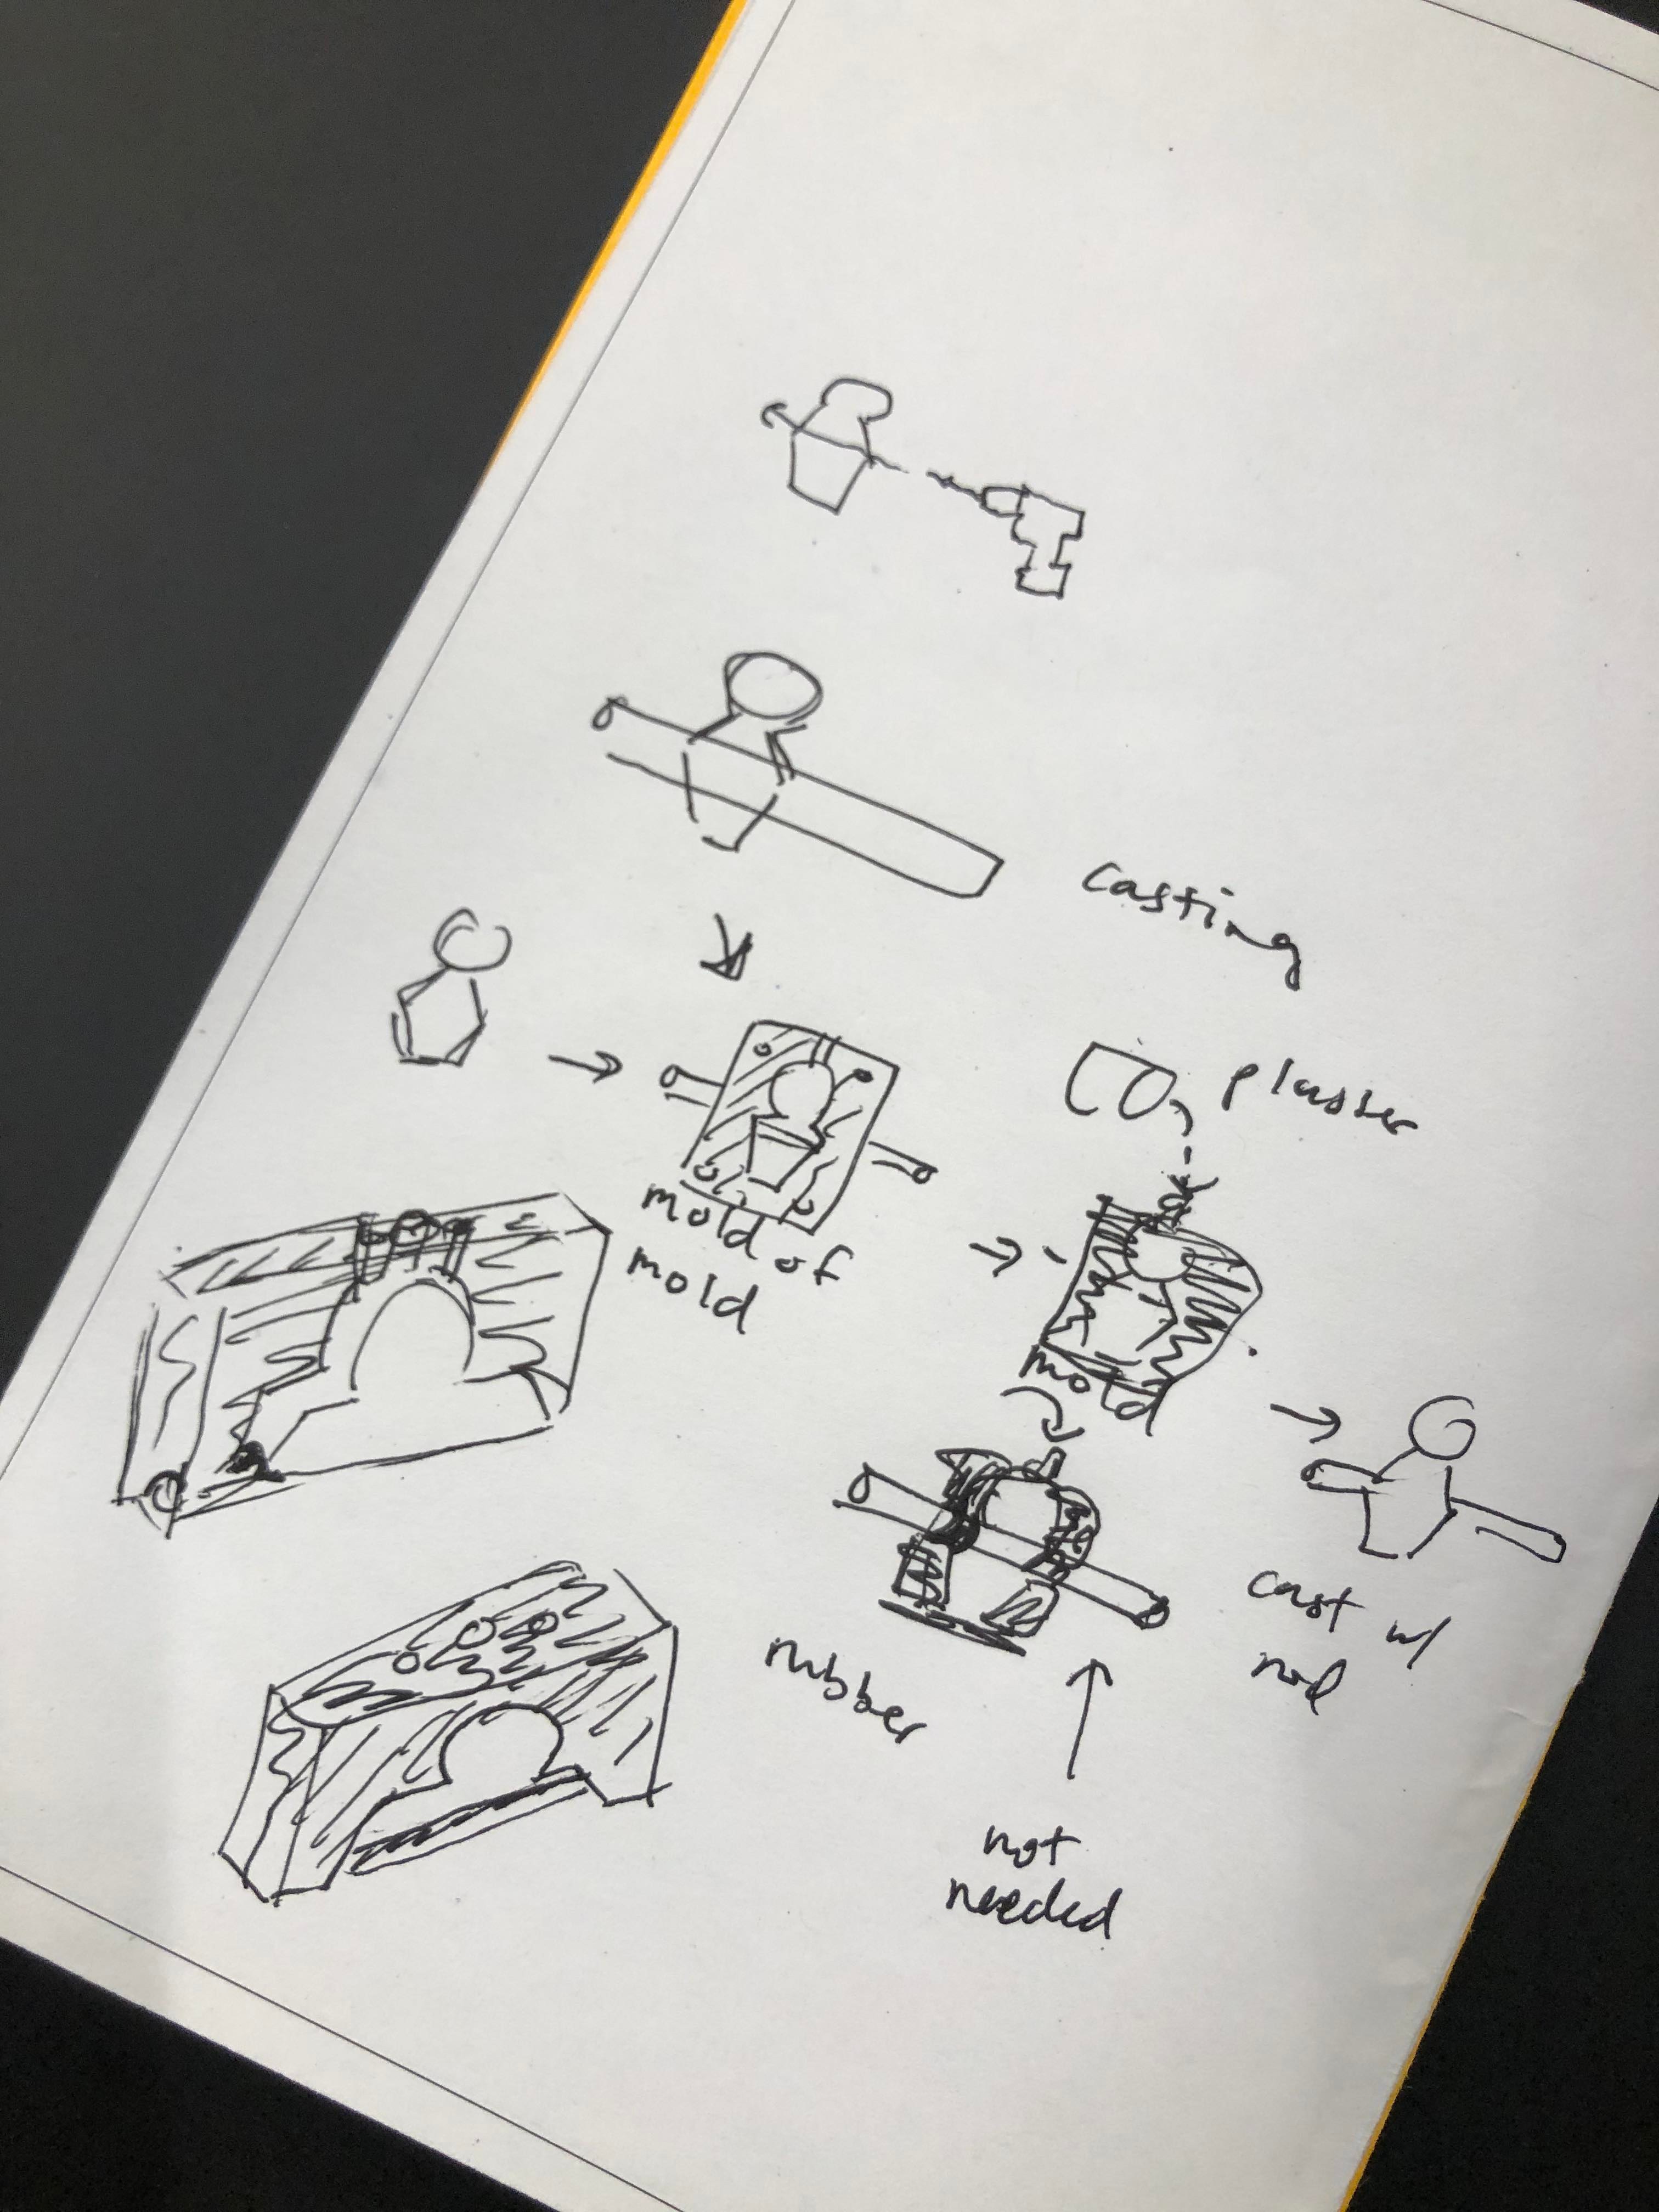 casting
plaster
mold of
mold
mold
cast w/
rod
rubber
not
needed